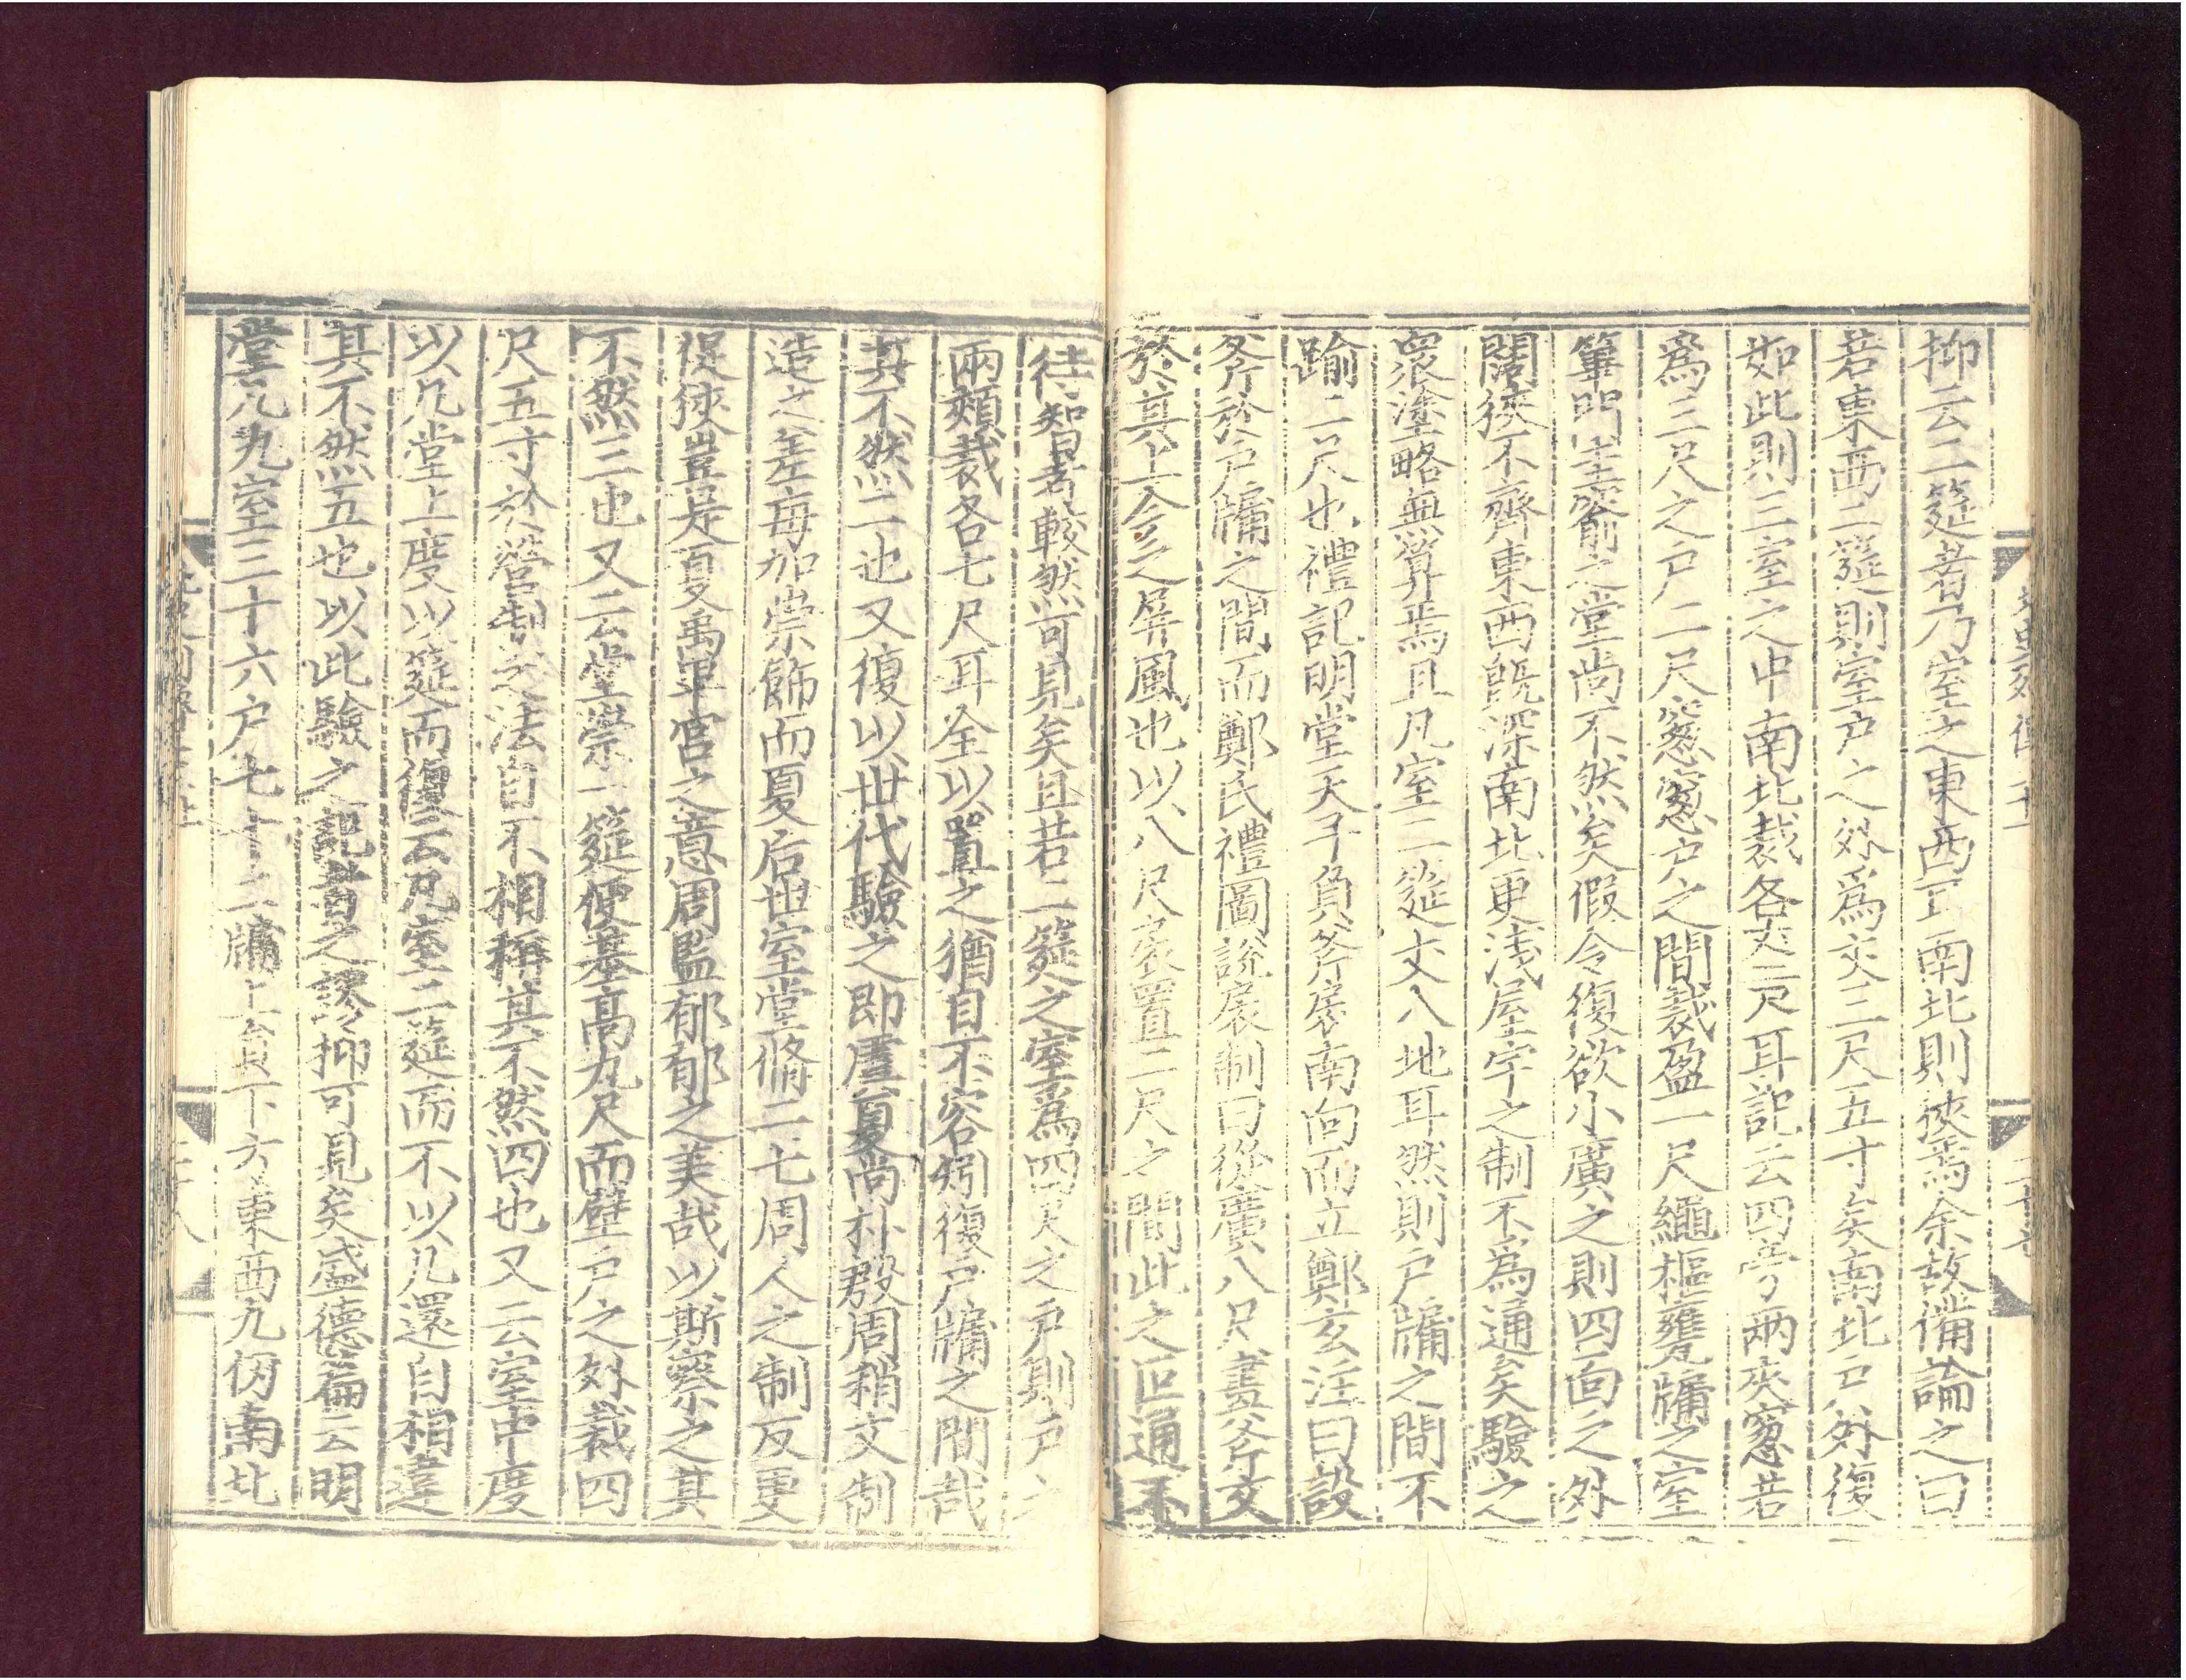 抑云二筵者乃室之東西耳南北則狹焉余故備論之曰
若東西二筵則室戶之外爲丈三尺五寸矣南北戶外復
如此則三室之中南北裁各丈二尺耳記云四旁兩夾窻若
爲三尺之戶二尺窻窻戶之間裁盈一尺繩樞甕牖之室
篳門圭窬之堂尚不然矣假令復欲小廣之則四面之外
闊狹不齊東西旣深南北更淺屋宇之制不為通矣驗之
衆塗略無算焉且凡室二筵丈八地耳然則戶牖之間不
踰二尺也禮記明堂天子負斧扆南向而立鄭玄注曰設
斧於戶牖之間而鄭氏禮圖說扆制曰從廣八尺畫斧文
於其上今之屏風也以八尺扆置二尺之間此之叵通不
待智者較然可見矣且若二筵之室爲四尺之戶則戶之
兩頰裁各七尺耳全以置之猶自不容矧復戶牖之間哉
其不然二也又復以世代驗之即虞夏尚朴殷周稍文制
造之差每加崇飾而夏后世室堂脩二七周人之制反更
促狹豈是夏禹卑宮之意周監郁郁之美哉以斯察之其
不然三也又云堂崇一筵便基高九尺而壁戶之外裁四
尺五寸於營制之法自不相稱其不然四也又云室中度
以几堂上度以筵而復云凡室二筵而不以几還自相違
其不然五也以此驗之記者之謬抑可見矣盛德篇云明
堂凡九室三十六戶七十二牖上負下方東西九仞南北